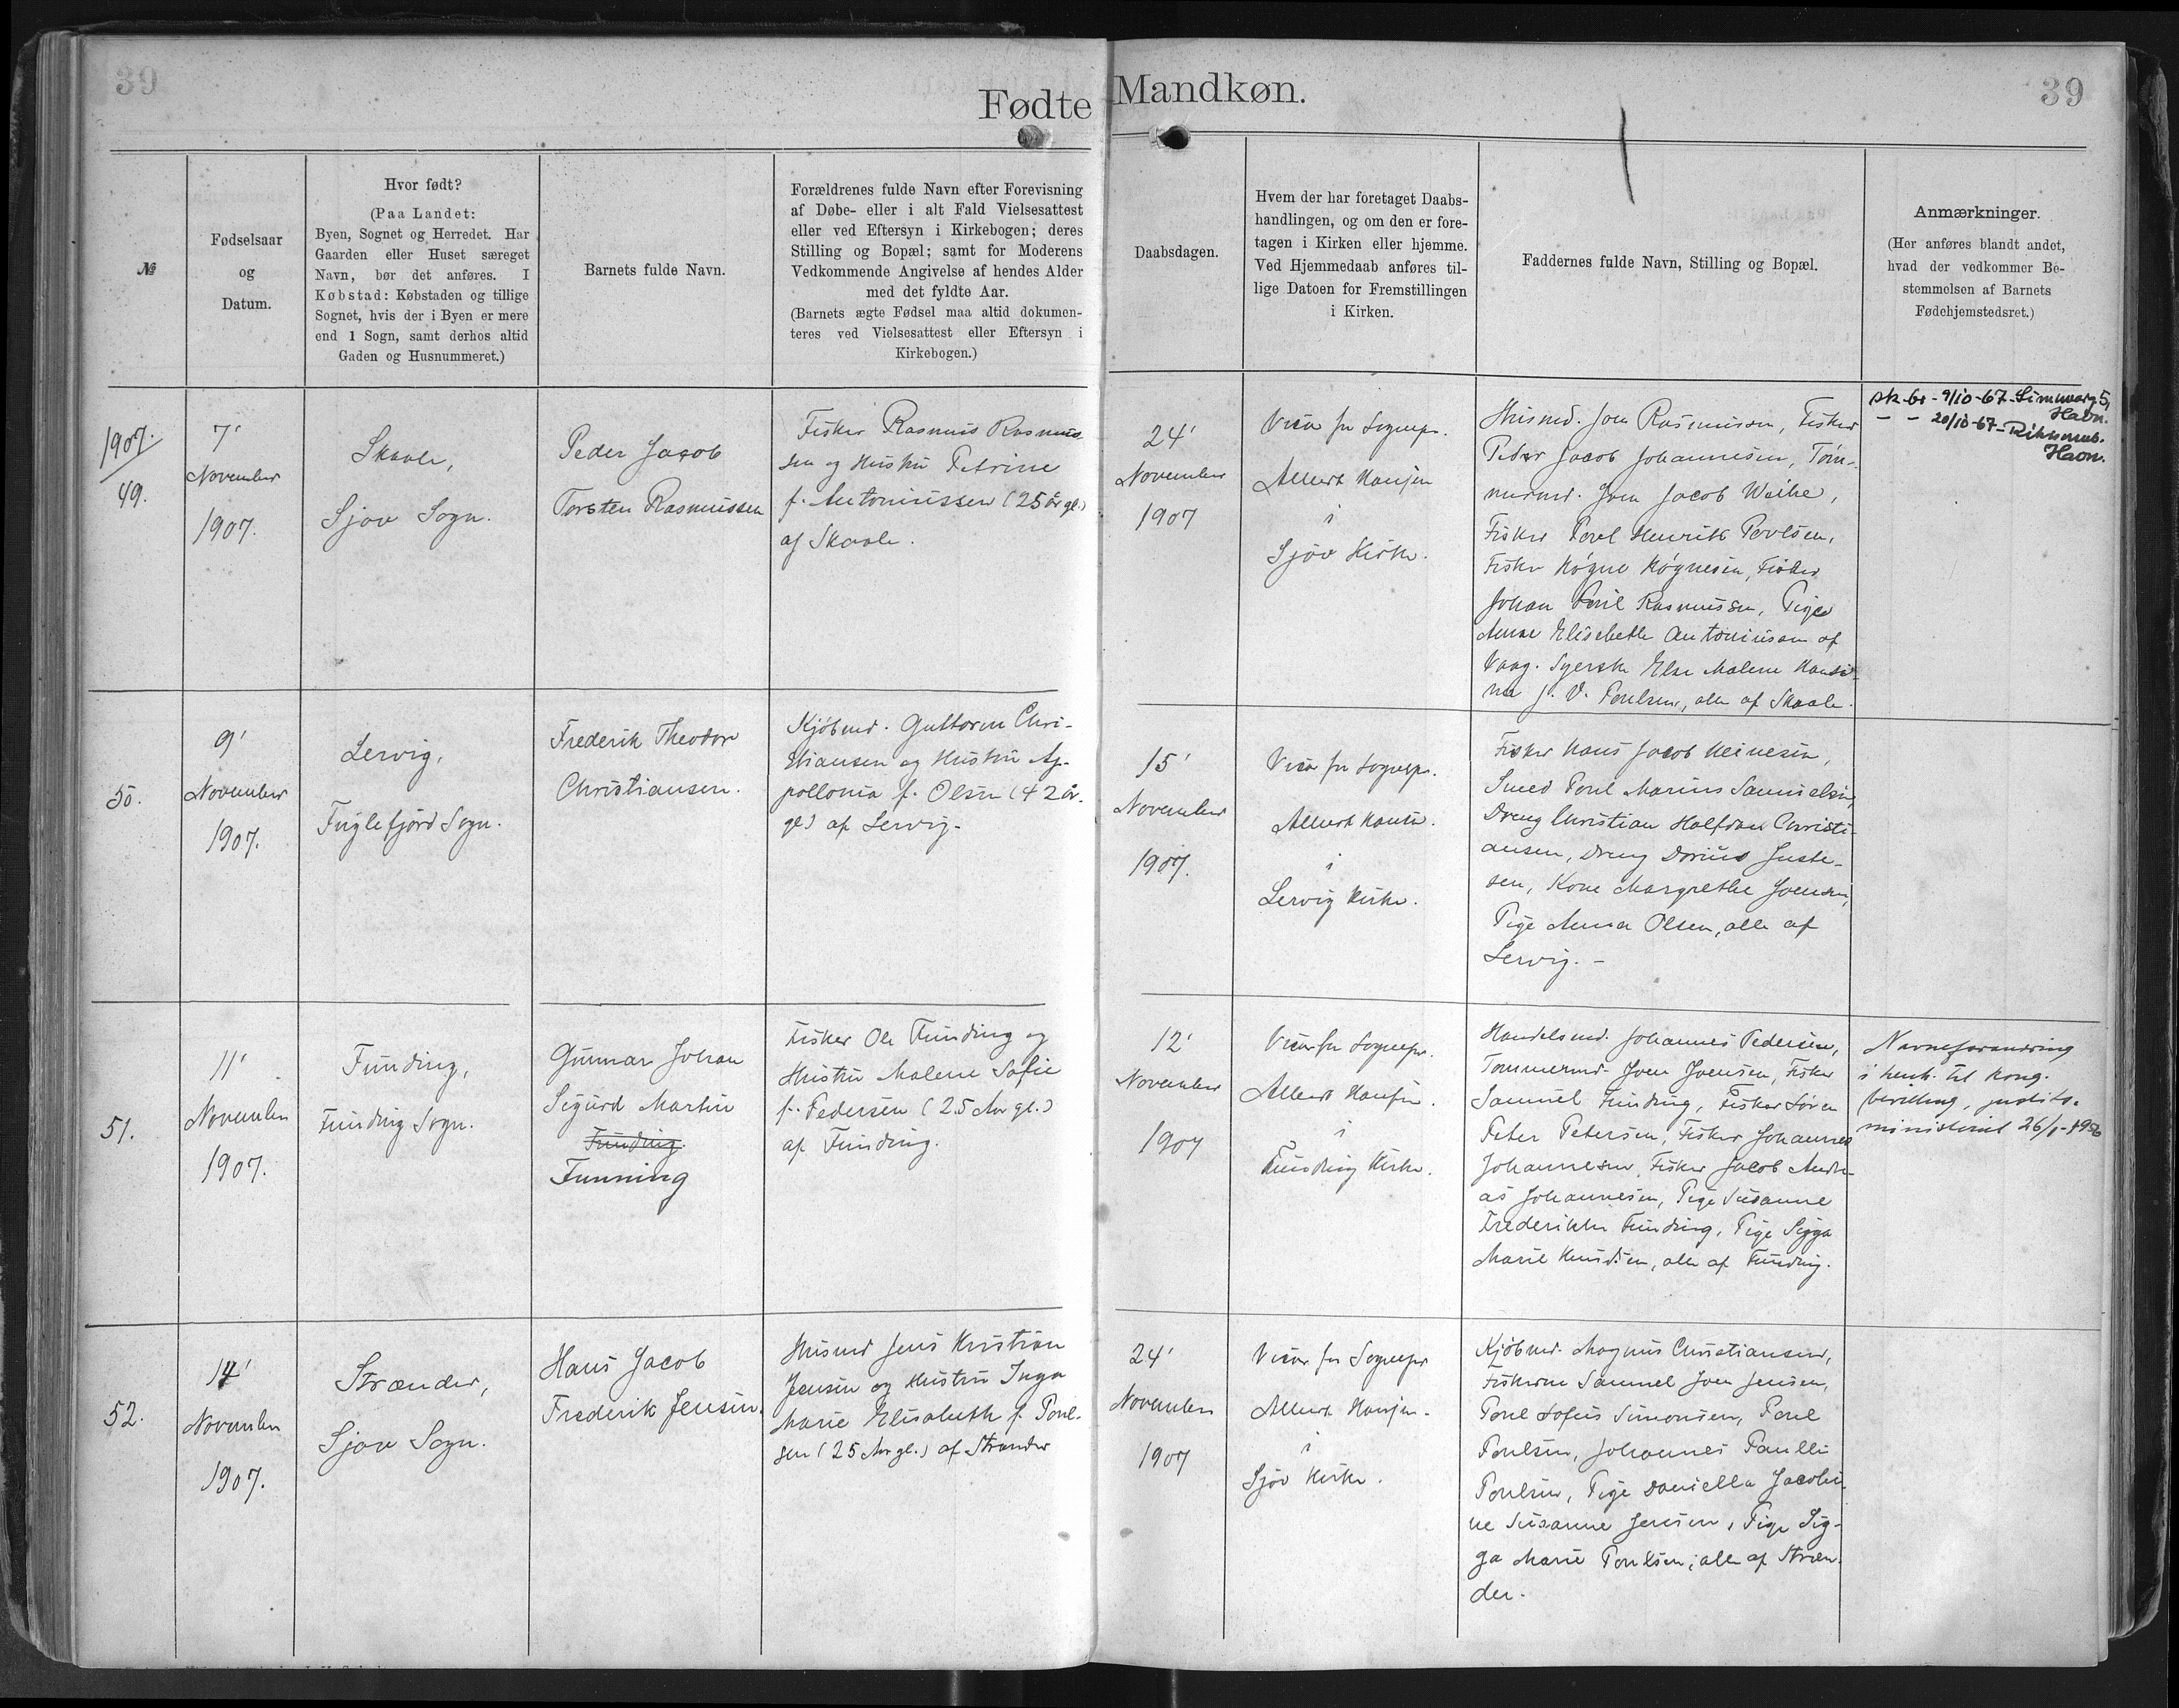 39
Fødte Mandkøn.
39
№
Fødselsaar
og
Datum.
Hvor født?
(Paa Landet:
Byen, Sognet og Herredet. Har
Gaarden eller Huset særeget
Navn, bør det anføres. I
Købstad: Købstaden og tillige
Sognet, hvis der i Byen er mere
end 1 Sogn, samt derhos altid
Gaden og Husnummeret.)
Barnets fulde Navn.
Forældrenes fulde Navn efter Forevisning
af Døbe- eller i alt Fald Vielsesattest
eller ved Eftersyn i Kirkebogen; deres
Stilling og Bopæl; samt for Moderens
Vedkommende Angivelse af hendes Alder
med det fyldte Aar.
(Barnets ægte Fødsel maa altid dokumen-
teres ved Vielsesattest eller Eftersyn i
Kirkebogen.)
Daabsdagen.
Hvem der har foretaget Daabs-
handlingen, og om den er fore-
tagen i Kirken eller hjemme.
Ved Hjemmedaab anføres til-
lige Datoen for Fremstillingen
i Kirken.
Faddernes fulde Navn, Stilling og Bopæl.
Anmærkninger.
(Her anføres blandt andet,
hvad der vedkommer Be-
stemmelsen af Barnets
Fødehjemstedsret.)
1907.
49.
7'
November
1907.
Skaale,
Sjov Sogn.
Peder Jacob
Torsten Rasmussen
Fisker Rasmus Rasmus
sen og Hustru Petrine
f. Antoniussen (25 år gl.)
af Skaale.
24'
November
1907
Vicar for Sognepr.
Albert Hansen
i
Sjov Kirke.
Husmd. Joen Rasmussen, Fisker
Peder Jacob Johannesen, Tøm-
mermd. Joen Jacob Weihe,
Fisker Poul Henrik Povlsen,
Fisker Høgne Høgnesen, Fisker
Johan Poul Rasmussen, Pige
Anne Elisebeth Antoniussen af
Vaag. Syerske Else Malene Hansi-
na J. V. Poulsen, alle af Skaale.
sk-br - 9/10-67
Havn.
— — 20/10-67
Havn.
50.
9'
November
1907.
Lervig,
Fuglefjord Sogn.
Frederik Theodor
Christiansen.
Kjøbmd. Guttorm Chri-
stiansen og Hustru Ap-
pollonia f. Olsen (42 år.
gl) af Lervig.
15'
November
1907.
Vicar for Sognepr.
Albert Hansen.
i
Lervig Kirke.
Fisker Hans Jacob Heinesen,
Smed Poul Marius Samuelsen,
Dreng Christian Halfdan Christi-
ansen, Dreng Dorius Juste-
sen, Kone Margrethe Joensen,
Pige Anna Olsen, alle af
Lervig. -
51.
11'
November
1907.
Funding,
Funding Sogn.
Gunnar Johan
Sigurd Martin
Funding
Funning
Fisker Ole Funding og
Hustru Malene Sofie
f. Pedersen (25 Aar gl.)
af Funding.
12'
November
1907
Vicar for Sognepr.
Albert Hansen.
i
Funding Kirke.
Handelsmd. Johannes Pedersen,
Tømmermd. Joen Joensen, Fisker
Samuel Funding, Fisker Søren
Peter Petersen, Fisker Johannes
Johannesen, Fisker Jacob Andre-
as Johannesen, Pige Susanne
Frederikke Funding, Pige Sigga
Marie Knudsen, alle af Funding.
Navneforandring
i henh. til kong.
bevilling, justits-
ministeriet
52.
14'
November
1907.
Strænder,
Sjov Sogn.
Hans Jacob
Frederik Jensen.
Husmd Jens Kristian
Jensen og Hustru Inga
Marie Elisabeth f. Poul-
sen (25 Aar gl.) af Strænder
24'
November
1907
Vicar for Sognepr
Albert Hansen.
i
Sjov Kirke.
Kjøbmd. Magnus Christiansen,
Fiskerne Samuel Joen Jensen,
Poul Sofus Simonsen, Poul
Poulsen, Johannes Paulli
Poulsen, Pige Daniella Jacobi-
ne Susanne Jensen, Pige Sig-
ga Marie Poulsen; alle af Stræn-
der.